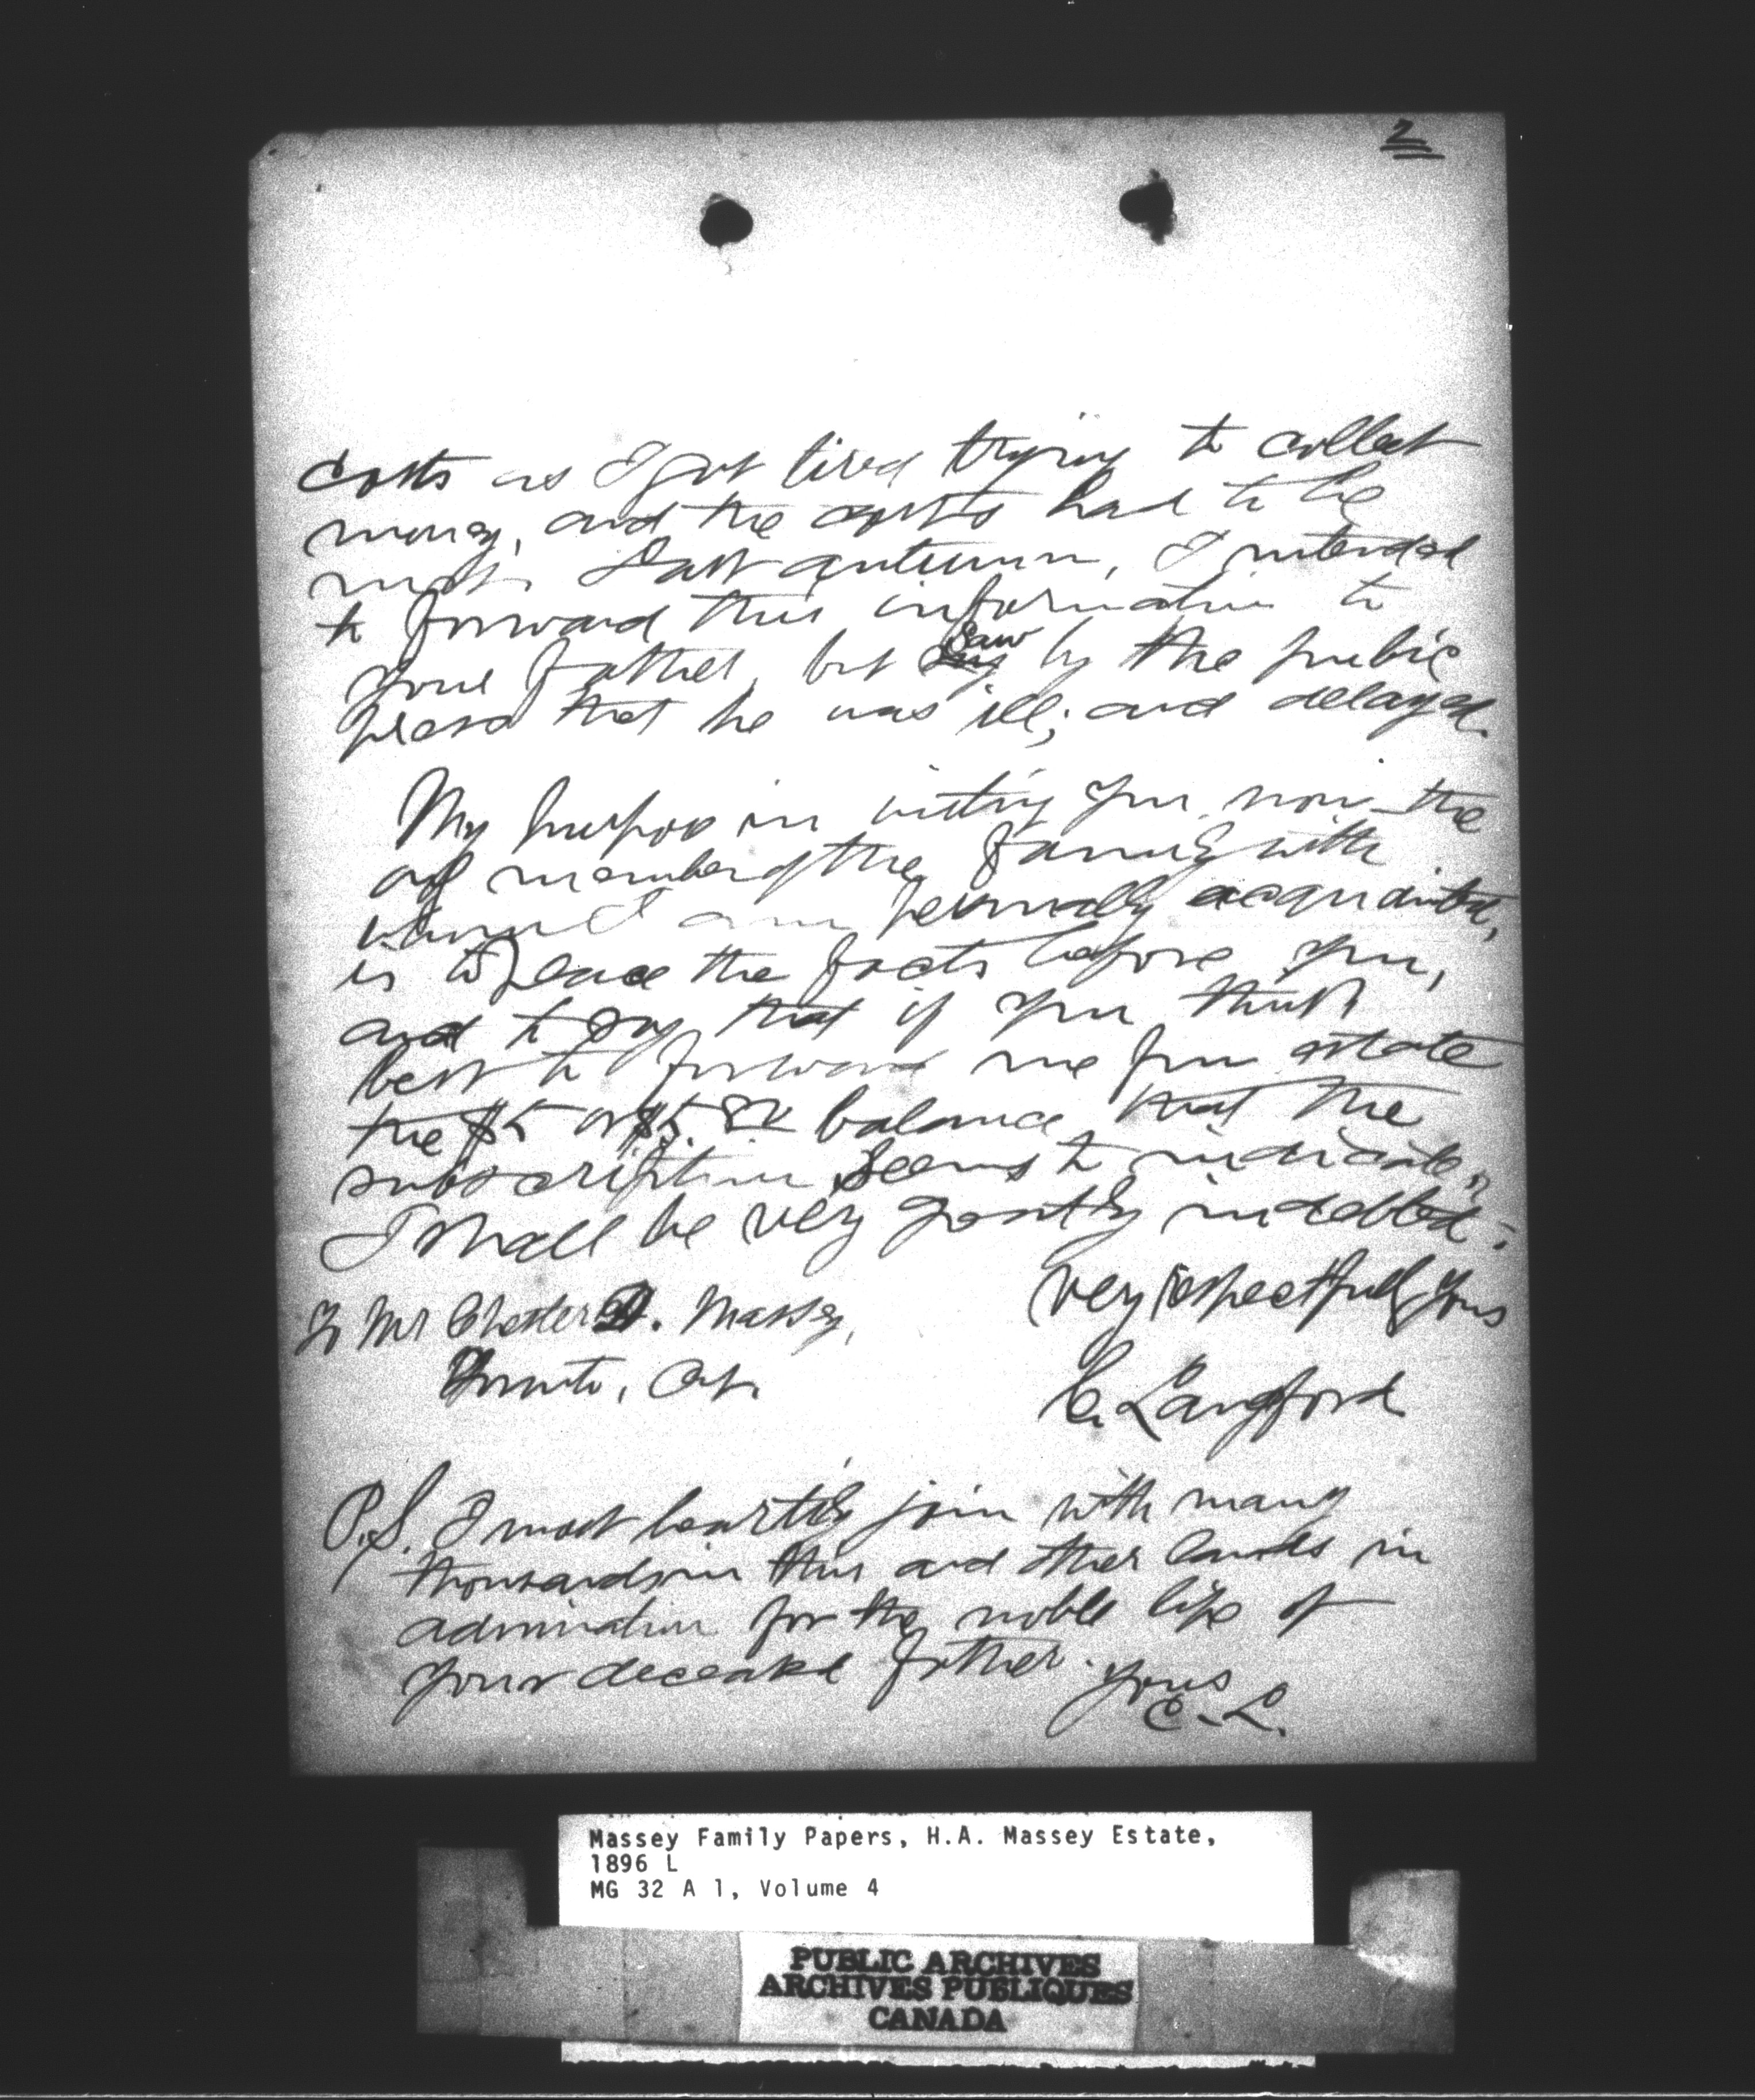 2
costs as I got tired trying to collect
money, and the costs had to be
met. Last autumn, I intended
to forward this information to
your father, but saw by the public
press that he was ill; and delayed.
My purpose in writing you now the
only member of the family with
whom I am personally acquainted,
is to place the facts before you,
and to say that if you think
best to forward me from estate
the $5 or balance that the
subscription seems to indicate,
I shall be very greatly indebted.
Very respectfully yours
To Mr Chester D. Massey,
Toronto, Ont.
C. Langford
P.S. I most heartily join with many
thousands in this and other lands in
admiration for the noble life of
your deceased father. Yours
C. L.
Massey Family Papers, H.A. Massey Estate,
1896 L
MG 32 A 1, Volume 4
PUBLIC ARCHIVES
ARCHIVES PUBLIQUES
CANADA